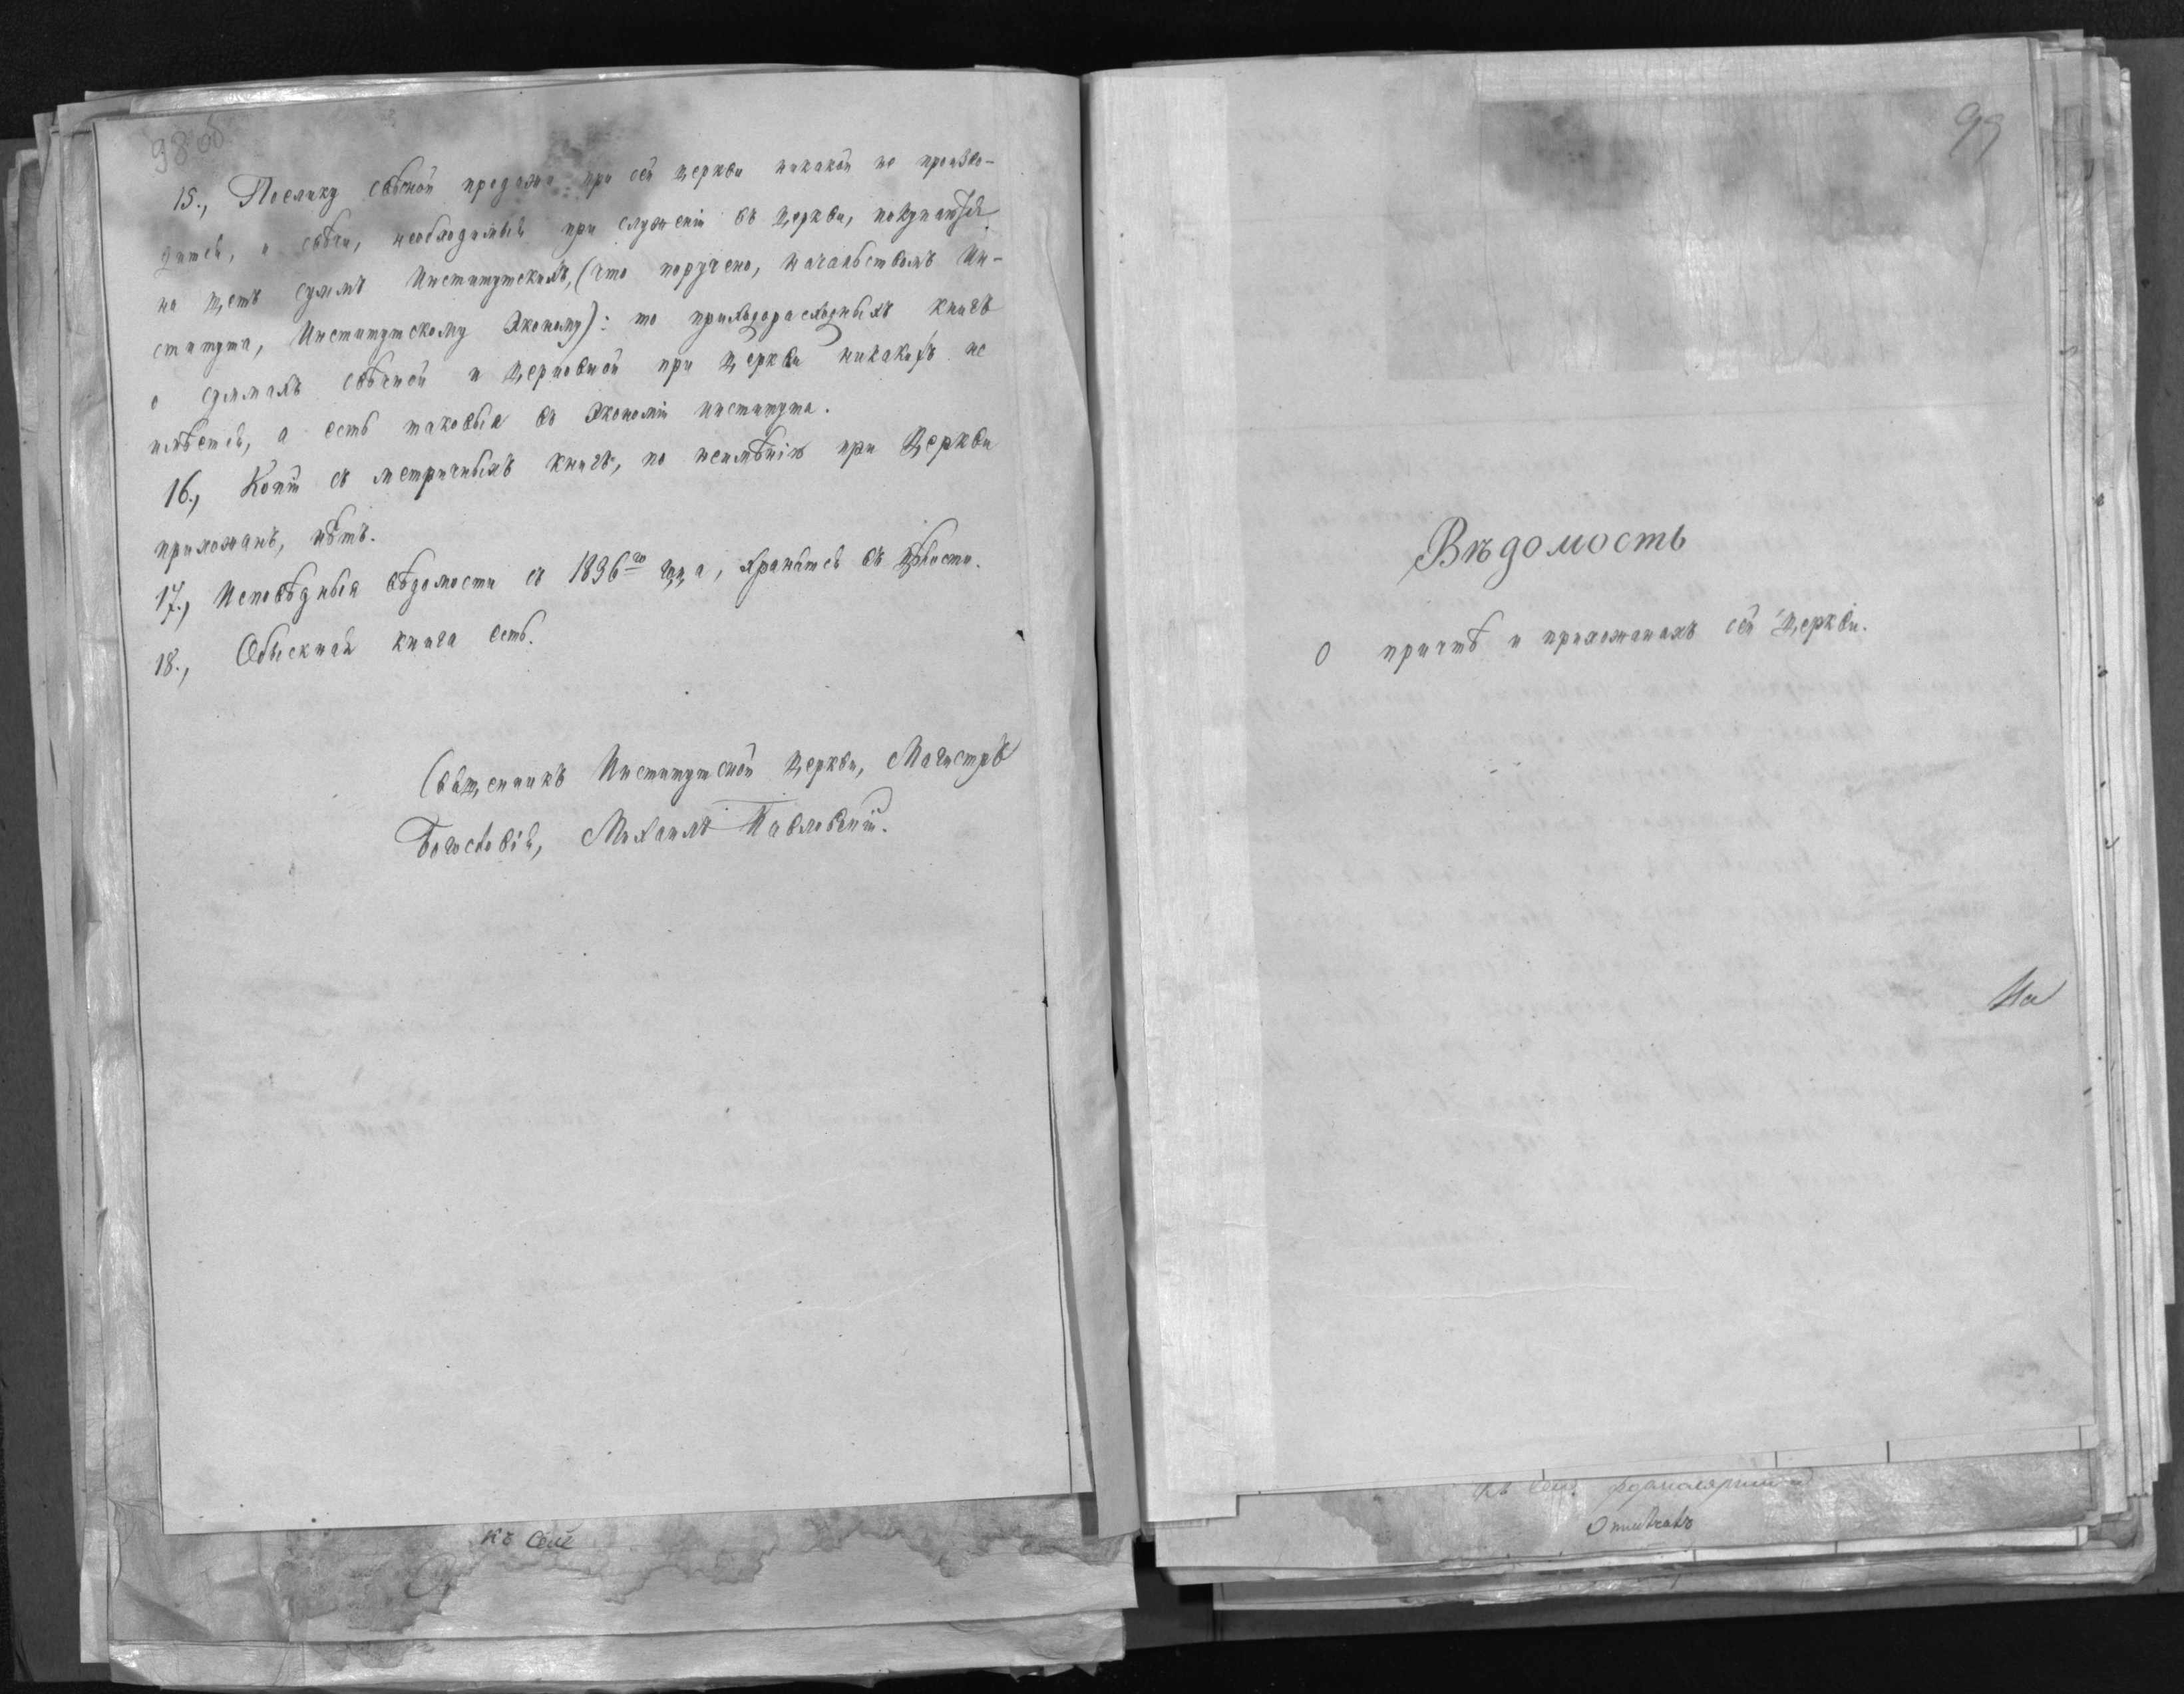 98 об
15., Поелику свѣчной продажи при сей церкви никакой не произво-
дится, и свѣчи, необходимыя при служеніи въ церкви, покупаются
на щетъ суммъ Институтскихъ, (что поручено, начальствомъ Ин-
ститута, Институтскому Эконому): то приходорасходныхъ книгъ
о суммахъ свѣчной и церковной при церкви никакихъ не
имѣется, а есть таковыя въ Экономіи института.
16., Копій съ метричныхъ книгъ, по неимѣнію при Церкви
прихожанъ, нѣтъ.
17., Исповѣдныя вѣдомости съ 1836го года, хранятся въ цѣлости.
18., Обыскная книга есть.
Священникъ Институтской церкви, Магистръ
Богословія, Михаилъ Павловскій.
къ сей
99
Вѣдомость
О причтѣ и прихожанахъ сей церкви.
На
Къ сей